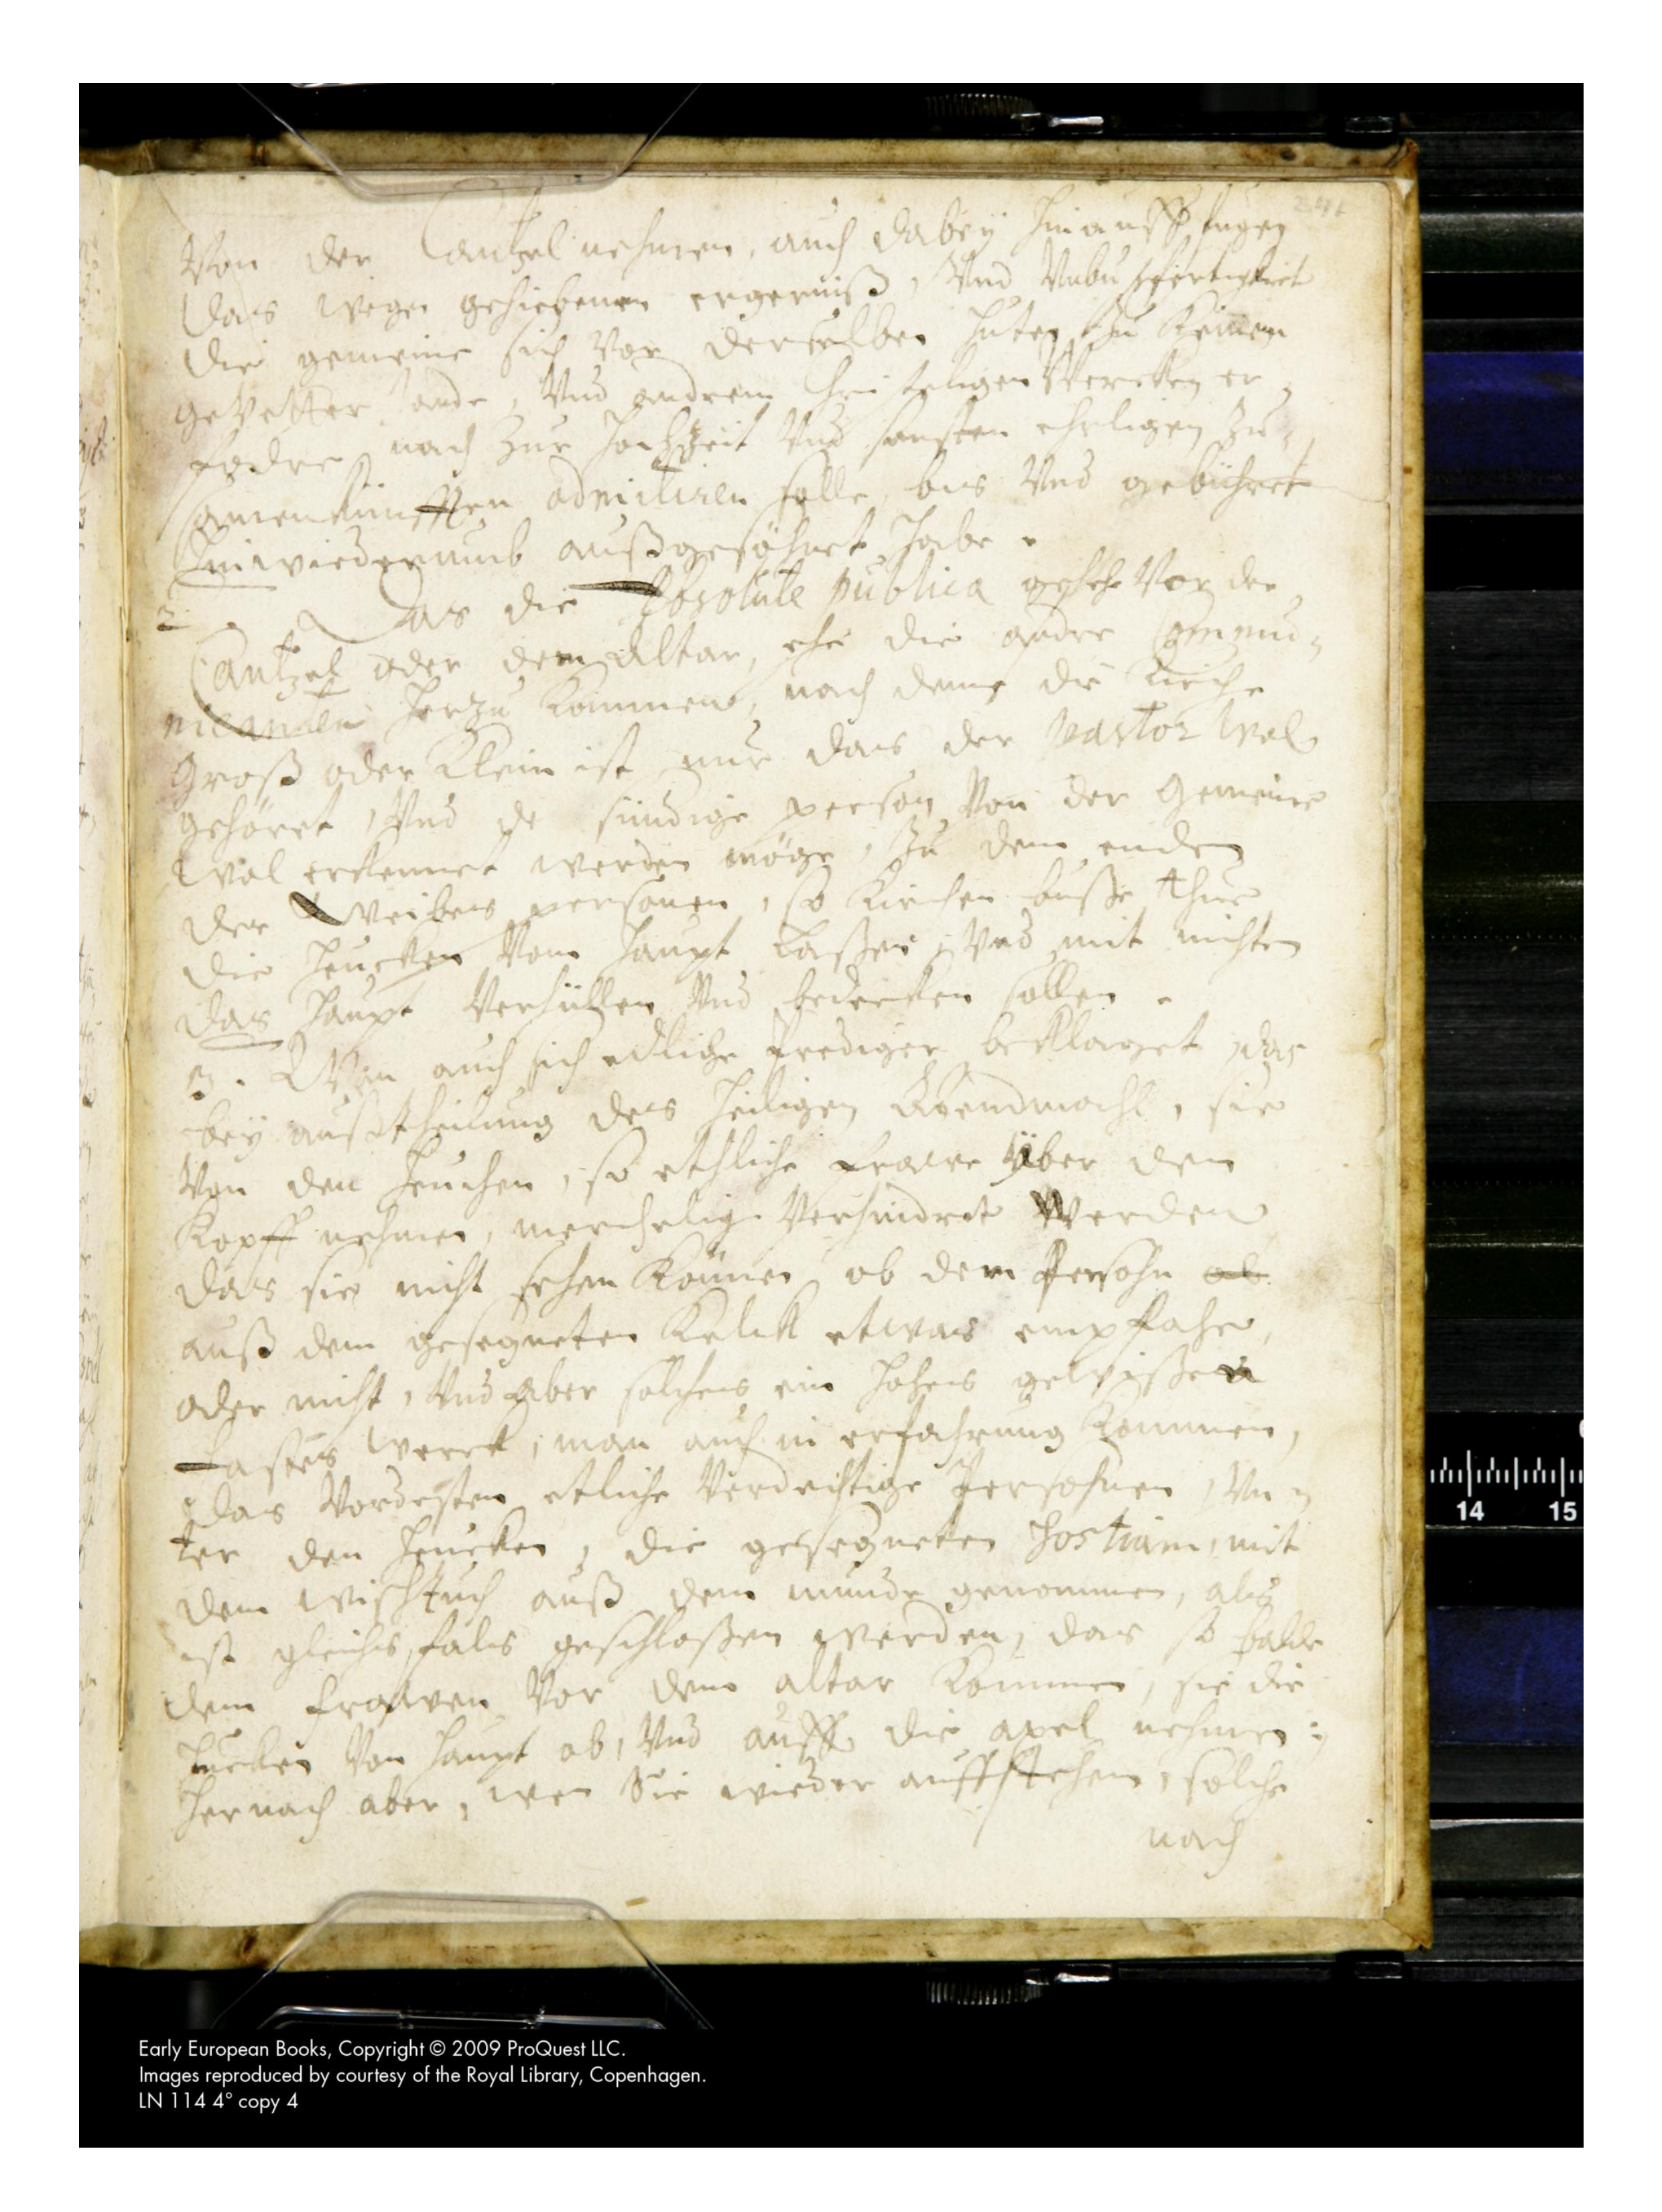 Von der Cantzel nehmen, auch dabey hinauff fugen
das wegen gehiebenen ergerniß, Vnd Vnbußfertigkeit
die gemeine sich vor derselben huten zu keinem
geVatter stande, Vnd andren Christligen Wercken er
fodre, noch zur Hochzeit Vnd sonsten ehrligen Zu=
samenkunfften admitiren solle, bis Vnd gebühret
hinwiederumb außgesöhnet habe.
2. Das die Absolute publica geschehe Vor der
Cantzel oder dem Altar, ehe die andre Commu=
nicanten herzu kommen, nach deme die Kirche
groß oder klein ist nur das der pastor wol
gehöret, Vnd de sündige person Von der Gemeine
wol erkennet werden möge, Zu dem enden
der Weibes personen, so Kirchen busse thun
die heucken Vom haupt laßen, Vnd mit nichten
das haupt Verhüllen Vnd bedecken sollen.
3. Wan auch sich edliche Prediger beklaget, das
bey außtheilung des heiligen Abendmahl, sie
Von den heuchen, so ethliche frawe über den
Kopff nehmen, mercklig Verhindret werden
das sie nicht sehen können ob dem Persohn ob
auß dem gesegneten Kelck etwas empfahe,
oder nicht, Vnd aber solches ein hohes gewißen
werck, man auch in erfahrung kommen,
das Vordesten etliche Verdechtige Persohnen, Vn=
ter den heucken, die gesegneten Hostiam, mit
dem wischtuch auß dem munde genommen, als
ist gleichs fals geschloßen werden, das so balde
dem frawen Vor dem altar kommen, sie die
heucken Von haupt ab, Vnd auff die axel nehmen;
hernach aber, wen Sie wieder auffstehen, solche
nach
14 15
Early European Books, Copyright © 2009 ProQuest LLC.
Images reproduced by courtesy of the Royal Library, Copenhagen.
LN 114 4° copy 4